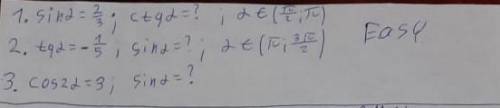 1. sinα = 2/3; ctgα = ?; α ∈ (π/2; π)
2. tgα = -1/5; sinα = ?; α ∈ (π; 3π/2)
Easy
3. cos2α = 3; sinα = ?